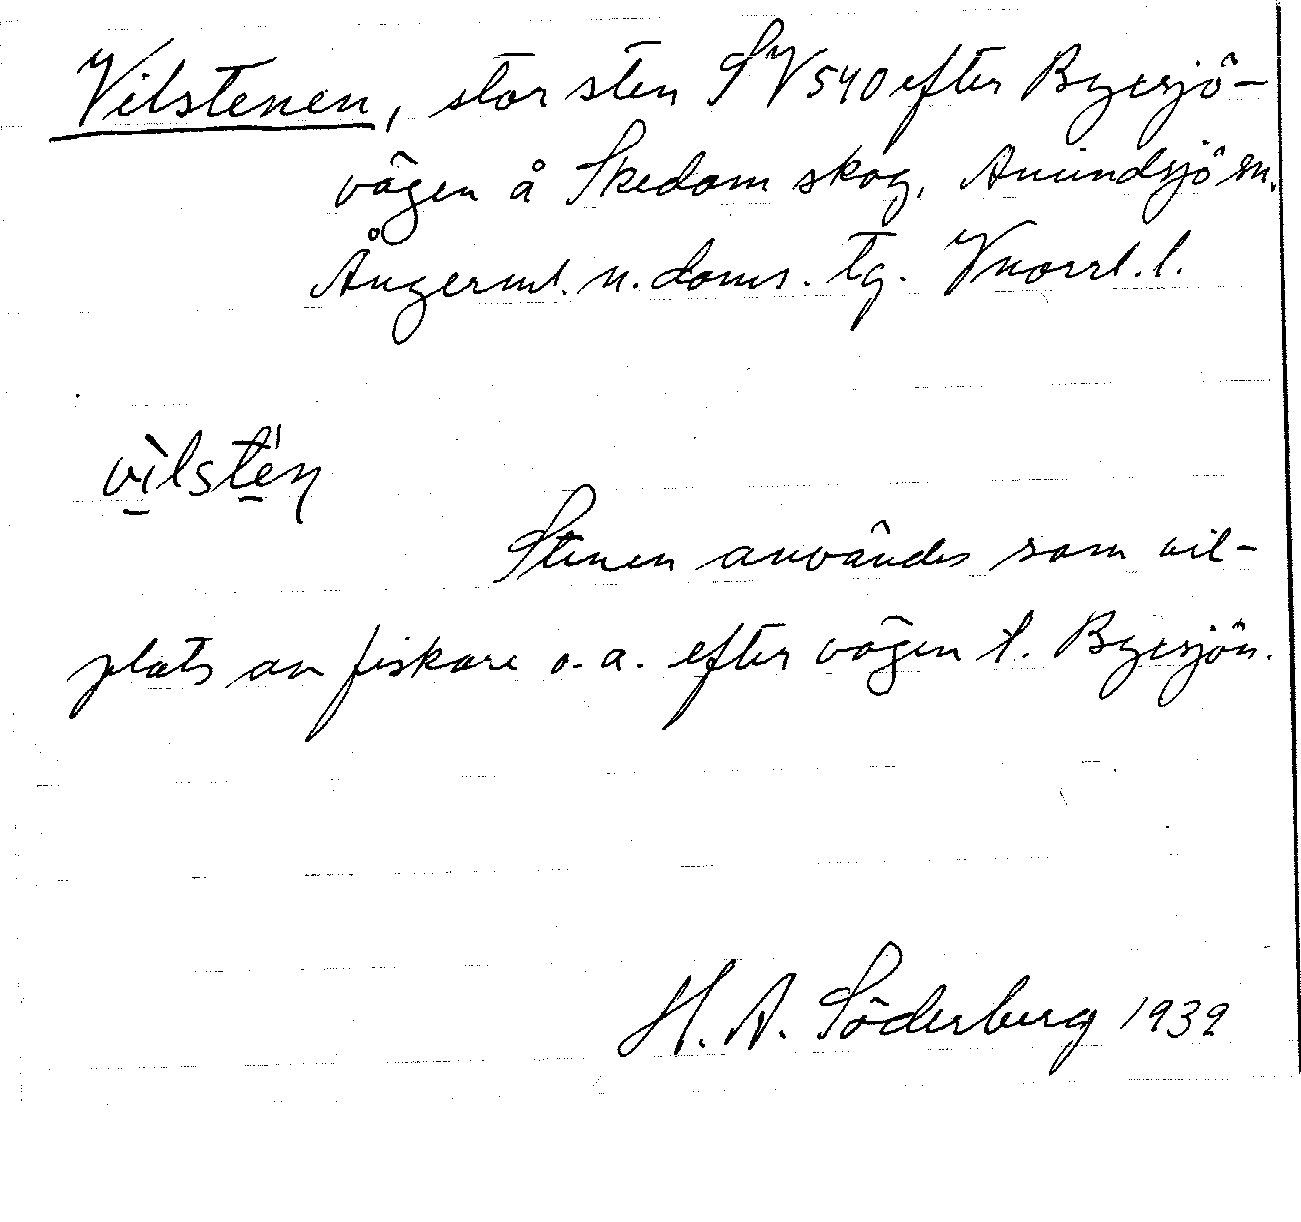 Vilstenen, stor sten SV 540 efter Byesjö-
vägen å Skedom skog, Anundsjö sn.
Ångerml. n. doms. tg. Vnorrl. l.
vìlstén
Stenen användes som vil-
plats av fiskare o. a. efter vägen t. Byesjön.
H. A. Söderberg 1939